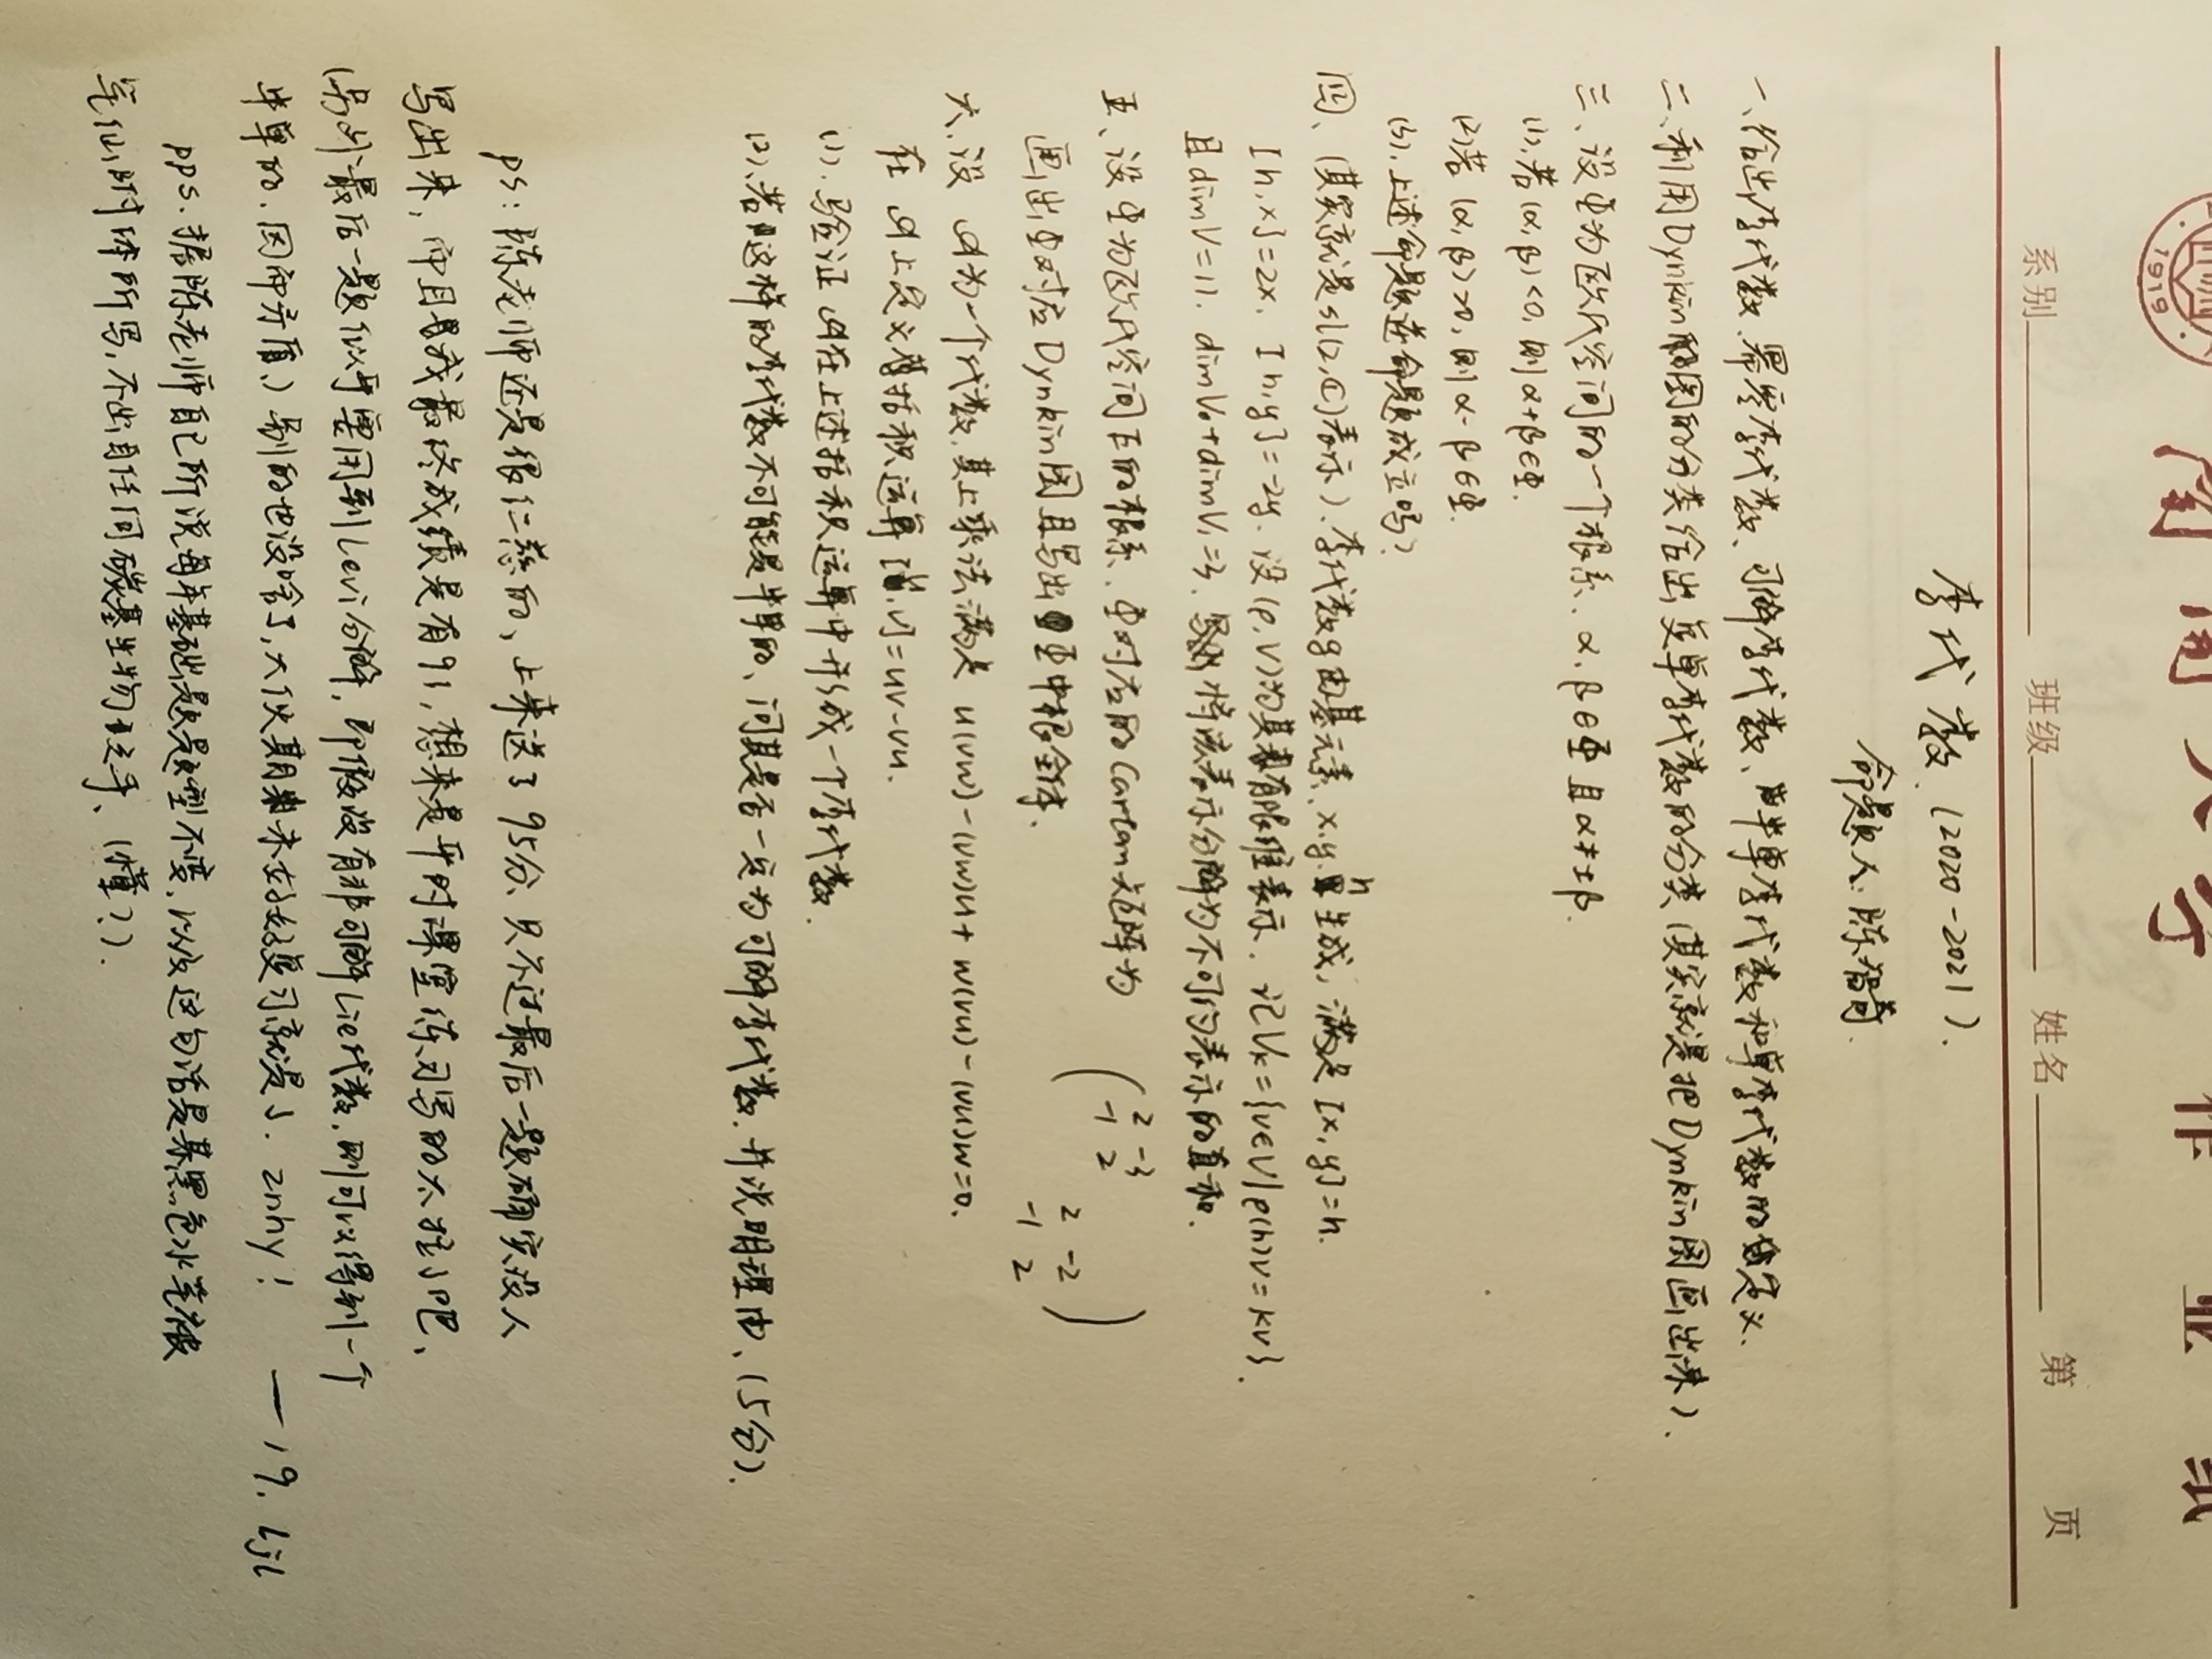 南开大学作业纸
1919
系别 班级 姓名 第 页
李代数 (2020-2021).
命题人: 陈智奇.
一、给出李代数、幂零李代数、可解李代数、半单李代数和单李代数的定义.
二、利用Dynkin图的分类给出复单李代数的分类(其实就是把Dynkin图画出来).
三、设Φ为欧氏空间的一个根系. α,β∈Φ且α≠±β.
(1). 若(α,β)<0, 则α+β∈Φ.
(2). 若(α,β)>0, 则α-β∈Φ.
(3). 上述命题逆命题成立吗?
四、(其实就是sl(2,ℂ)表示). 李代数g由基元素x,y,h生成, 满足[x,y]=h.
[h,x]=2x. [h,y]=-2y. 设(ρ,V)为其有限维表示. 记Vₖ={v∈V|ρ(h)v=kv}.
且dimV=11. dimV₀+dimV₁=3. 将该表示分解为不可约表示的直和.
五、设Φ为欧氏空间E的根系. Φ对应的Cartan矩阵为
( 2 -3
-1 2
2 -2
-1 2 )
画出Φ对应Dynkin图且写出Φ中根全体.
六. 设A为一个代数, 其上乘法满足 u(vw)-(vw)u+w(vu)-(vu)w=0.
在A上定义括积运算[u,v]=uv-vu.
(1). 验证A在上述括积运算中形成一个李代数.
(2). 若这样的李代数不可能是半单的、问其是否一定为可解李代数. 并说明理由、(5分).
ps: 陈老师还是很仁慈的、上来送了95分、只不过最后一题确实没人
写出来, 而且我最终成绩是有91, 想来是平时课堂练习写的太拉了吧、
(另外最后一题似乎要用到Levi分解, 即假设有非可解Lie代数, 则可以得到一个
半单的. 因而矛盾.) 别的也没啥了, 大伙期末好好复习就是了. znhy! —— 19. ljl
pps. 据陈老师自己所说每年基础题题型不变、以及这句话是某黑色水笔被
笔仙附体所写, 不出自任何碳基生物之手、(懂?).